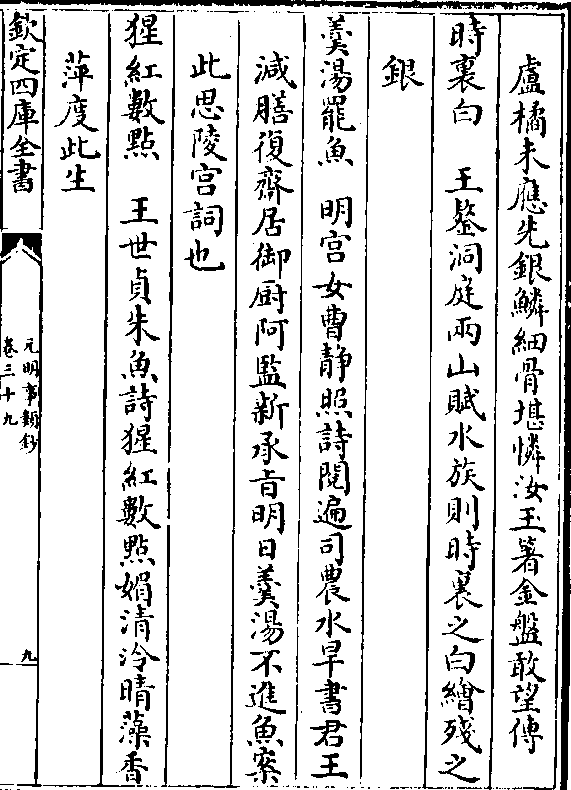 盧橘未應先銀鱗細骨堪憐汝玉箸金盤敢望傳
時裏白　王鏊洞庭兩山賦水族則時裏之白鱠殘之
銀
羮湯罷魚　明宫女曹静照詩閱遍司農水旱書君王
減膳復齋居御厨阿監新承㫖明日羮湯不進魚案
此思陵宫詞也
猩紅數點　王世貞朱魚詩猩紅數點媚清泠晴藻香
萍度此生
欽定四庫全書
元明事類鈔
卷三十九
九